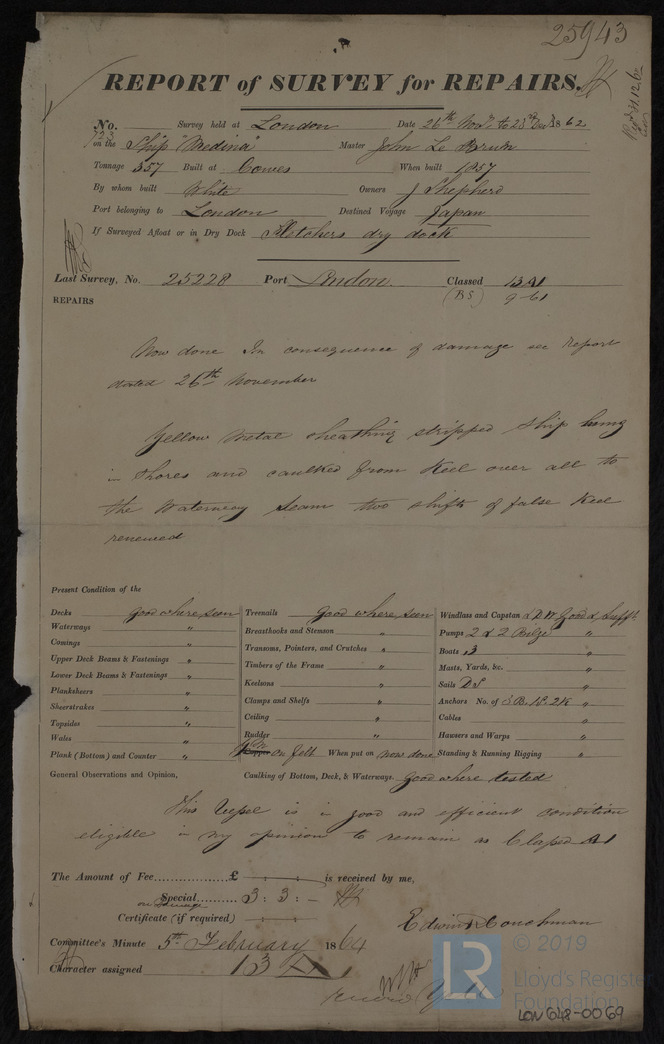 25943
REPORT of SURVEY for REPAIRS.
No. 723 Survey held at London Date 26th Novr to 23rd Decr 1862
on the Ship "Medina" Master John Le Brun
Tonnage 357 Built at Cowes When built 1857
By whom built White Owners J Shepherd
Port belonging to London Destined Voyage Japan
If Surveyed Afloat or in Dry Dock Fletchers dry dock
Last Survey, No. 25228 Port London. Classed 13 A1
(BS) 9-61
REPAIRS
Now done In consequence of damage see Report
dated 26th November
Yellow Metal sheathing stripped Ship hung
in Shores and caulked from Keel over all to
the Waterway Seam two shifts of false Keel
renewed
Present Condition of the
Decks good where seen Treenails good where seen Windlass and Capstan & P W Good & Sufft
Waterways " Breasthooks and Stemson " Pumps 2 & 2 Bilge "
Comings " Transoms, Pointers, and Crutches " Boats 3 "
Upper Deck Beams & Fastenings " Timbers of the Frame " Masts, Yards, &c. "
Lower Deck Beams & Fastenings " Keelsons " Sails DS "
Planksheers " Clamps and Shelfs " Anchors No. of 3 B. 1 S. 2 K "
Sheerstrakes " Ceiling " Cables "
Topsides " Rudder " Hawsers and Warps "
Wales " Copper on felt When put on now done Standing & Running Rigging "
Plank (Bottom) and Counter "
General Observations and Opinion, Caulking of Bottom, Deck, & Waterways good where tested
This Vessel is in good and efficient condition
eligible in my opinion to remain as Classed A1
The Amount of Fee £ : : is received by me,
Special 3 : 3 : -
on damage
Certificate (if required) : :
Edwin R Couchman
Committee's Minute 5th February 1864
Character assigned 13 A 1
LR © 2019
Lloyd's Register
Foundation
LON 648-0069